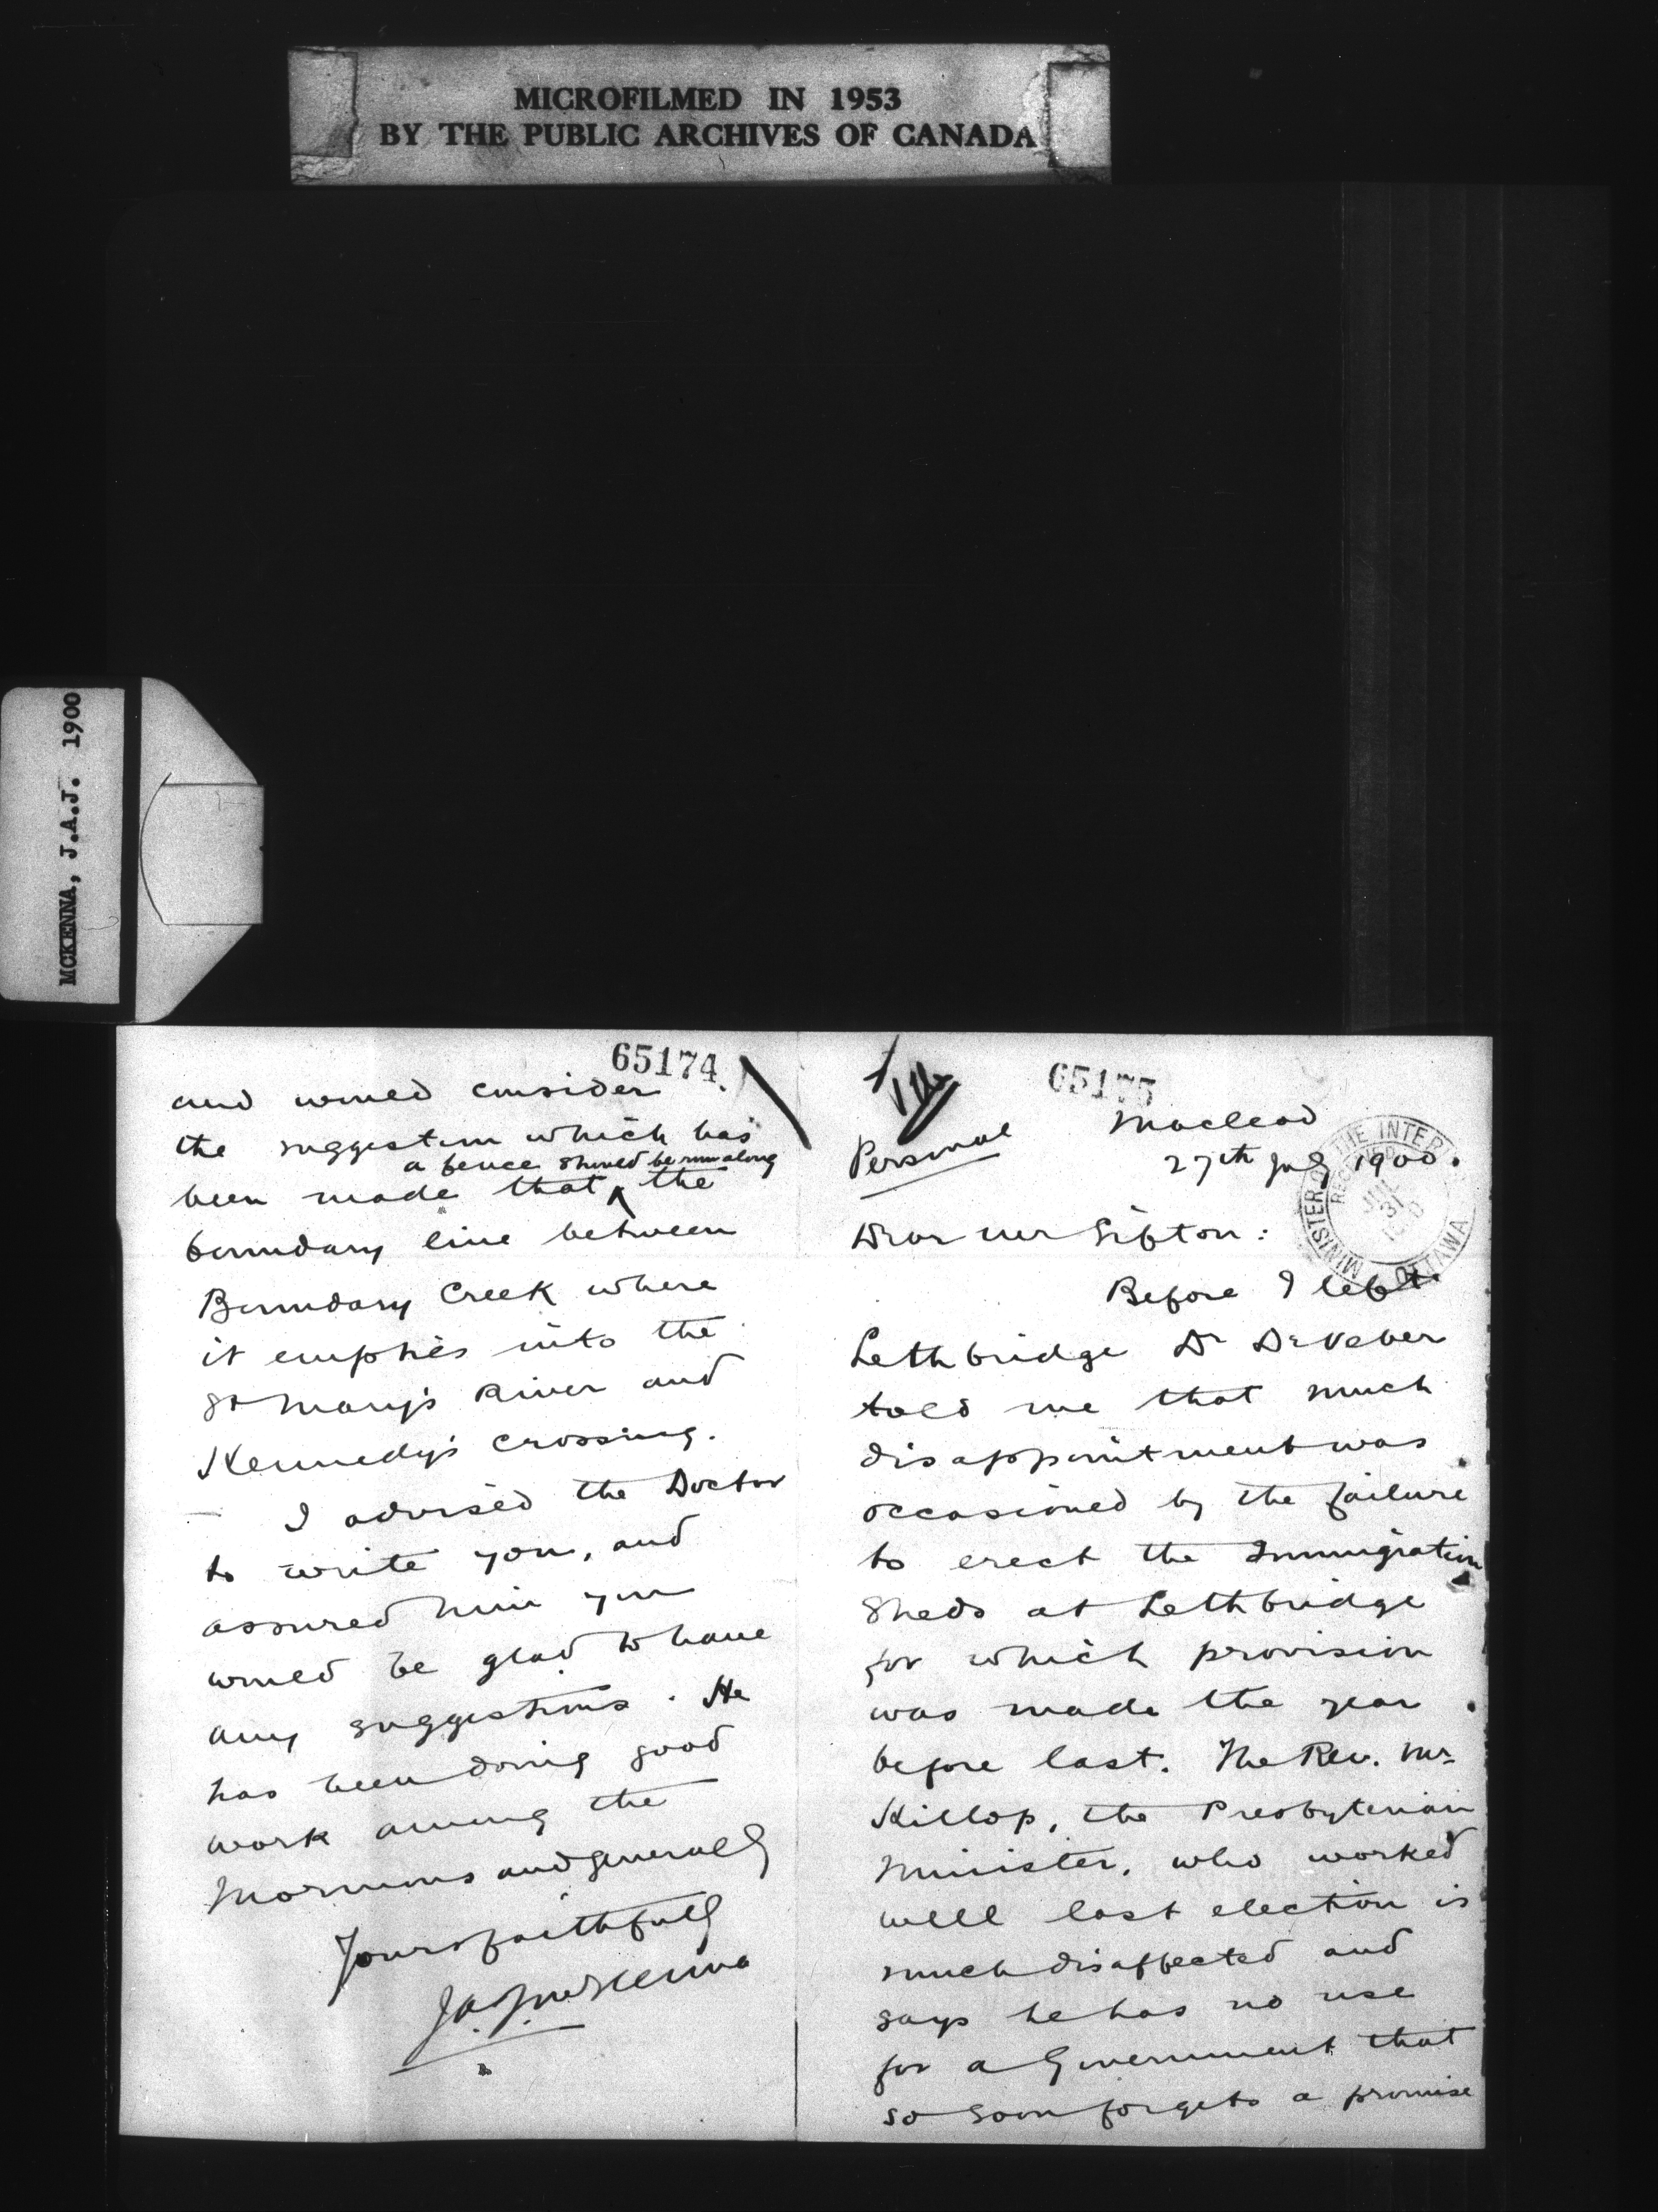 MICROFILMED IN 1953
BY THE PUBLIC ARCHIVES OF CANADA
MCKENNA, J.A.J. 1900
65174
and would consider
the suggestion which has
a fence should be run along
been made that ^ the
boundary line between
Boundary Creek where
it empties into the
St Mary's River and
Kennedy's Crossing.
I advised the Doctor
to write you, and
assured him you
would be glad to have
any suggestions. He
has been doing good
work among the
Mormons and generally
Yours faithfully
J.A.J. McKenna
65175
Personal
Macleod
27th July 1900.
MINISTER OF THE INTERIOR
REC'D
JUL
31
1900
OTTAWA
Dear Mr Sifton:
Before I left
Lethbridge Dr DeVeber
told me that much
disappointment was
occasioned by the failure
to erect the Immigration
Sheds at Lethbridge
for which provision
was made the year
before last. The Rev. Mr
Killop, the Presbyterian
Minister, who worked
well last election is
much disaffected and
says he has no use
for a Government that
so soon forgets a promise